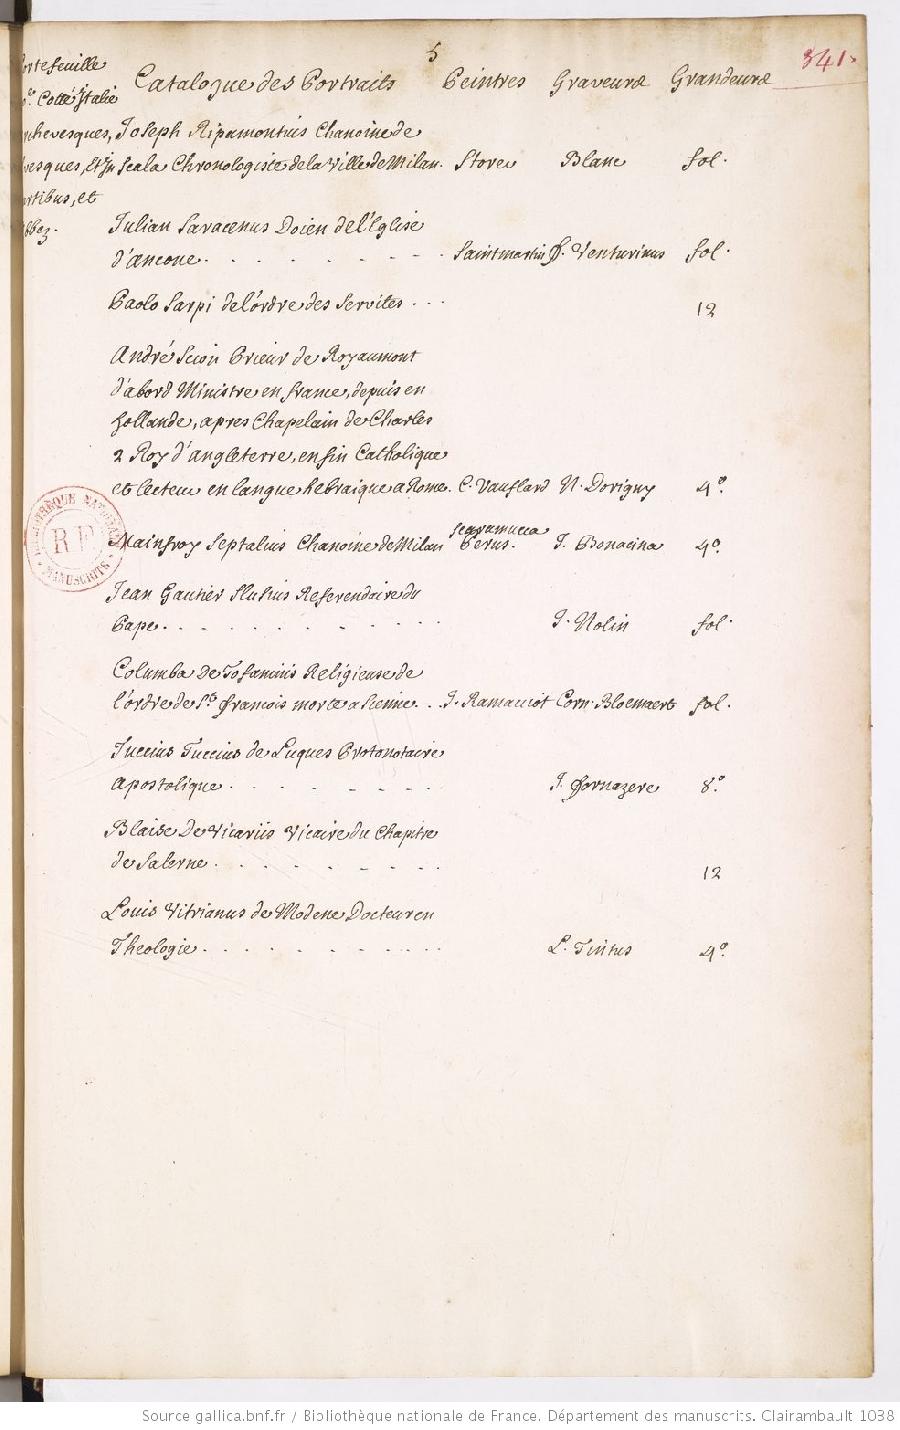 5
341.
ortefeuille
Cotté Italie
Catalogue des Portraits Peintres Graveurs Grandeurs
chevesques, Joseph Ripamontius Chanoine de
vesques, et In Scala Chronologiste de la Ville de Milan. Storer Blanc fol.
artibus, et
bbez.
Julian Saracenus Doien de l'Eglise
d'ancone. Saintmartin f. Venturinus fol.
Paolo Sarpi de l'ordre des Servites 12
André Scion Prieur de Royaumont
d'abord Ministre en france, depuis en
hollande, apres Chapelain de Charles
2 Roy d'angleterre, enfin Catholique
et lecteur en langue hebraique a Rome. C. Vauflard N. Dorigny 4º.
Scaramucca
Mainfroy Septalius Chanoine de Milan Perus. J. Bonacina 4º.
Jean Gautier Slusius Referendaire du
Pape. J. Nolin fol.
Columba de Tofaninis Religieuse de
l'ordre de St. françois morte a Sienne. J. Ramaciot Corn. Bloemaert fol.
Tuccius Tuccius de Luques Protonotaire
apostolique. J. fornazere 8º
Blaise de Vicariis Vicaire du Chapitre
de Salerne. 12
Louis Vitrianus de Modene Docteur en
Theologie. L. Tintus 4º.
BIBLIOTHÈQUE NATIONALE
R F
MANUSCRITS
Source gallica.bnf.fr / Bibliothèque nationale de France. Département des manuscrits. Clairambault 1038